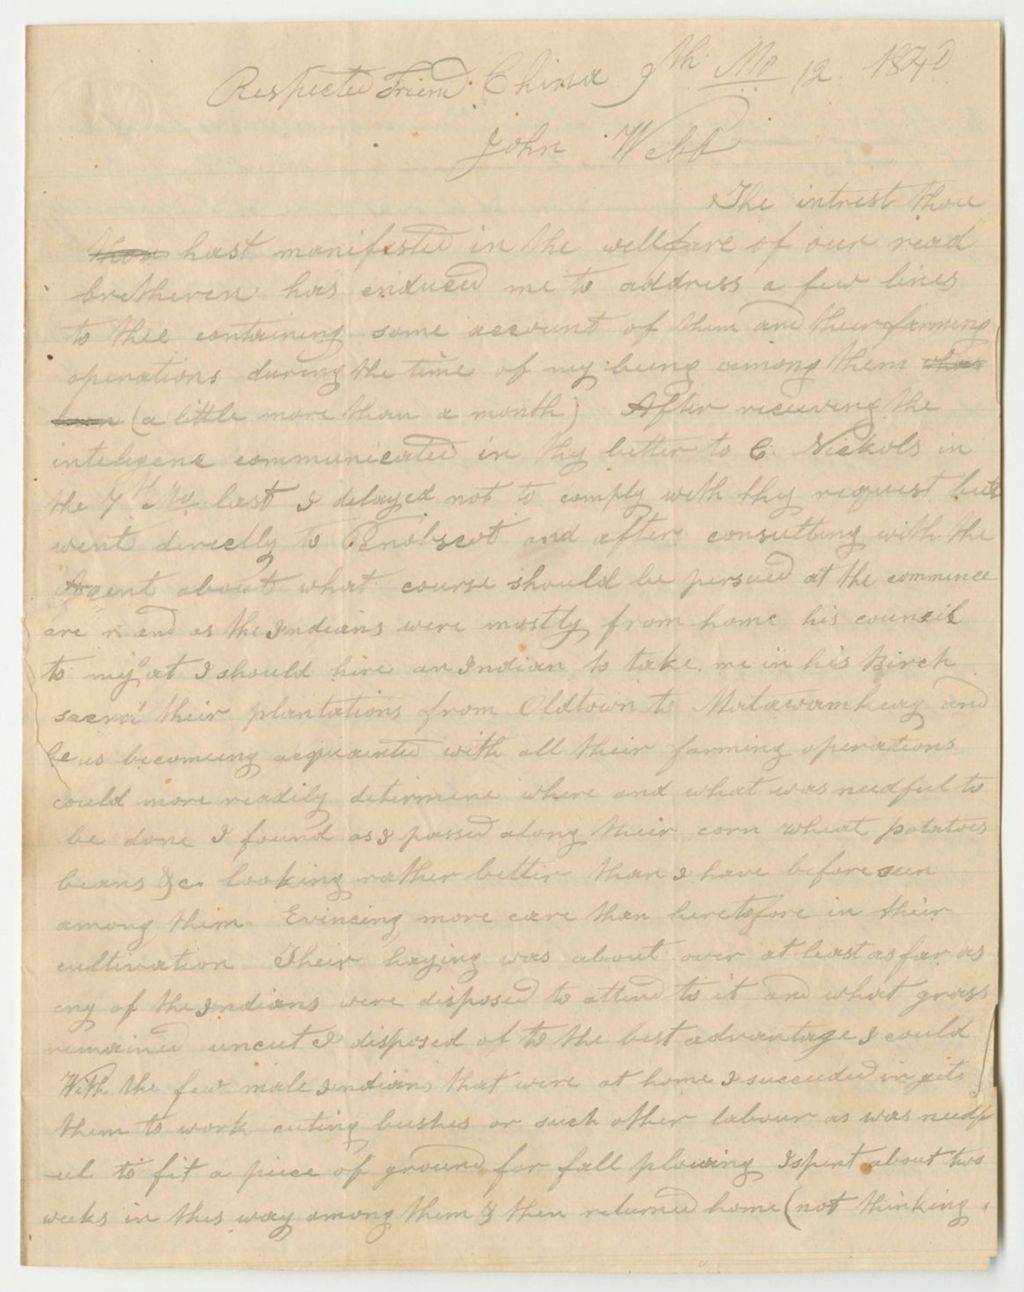 Respected Friend China 9th Mo 12. 1840
John Webb
The intrest thou
thou hast manifested in the wellfare of our read
bretheren has enduced me to address a few lines
to thee containing some account of them and their farming
operations during the time of my being among them
(a little more than a month) After receiving the
inteligenc communicated in thy letter to C. Nickols in
the 7th Mo last I delayed not to comply with thy request but
went directly to Penobscot and after consulting with the
Agent about what course should be persued at the commence
and as the Indians were mostly from home his council
to my at I should hire an Indian to take me in his Birch
their plantations from Oldtown to Matawamkeag and
us becomeing acquainted with all their farming operations
could more readily determine where and what was needful to
be done I found as I passed along their corn wheat potatoes
beans &c. looking rather better than I have before seen
among them. Evincing more care than heretofore in their
cultivation Their haying was about over at least as far as
any of the Indians were disposed to attend to it and what grass
remained uncut I disposed of to the best advantage I could
With the few male Indians that were at home I succeeded in geti
them to work cuting bushes or such other labour as was needf
-ul to fit a piece of ground for fall plowing I spent about two
weeks in this way among them & then returned home (not thinking